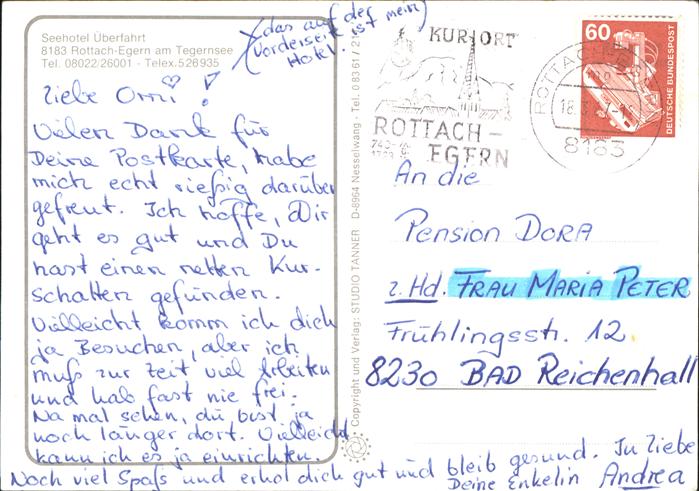 Seehotel Überfahrt
8183 Rottach-Egern am Tegernsee
Tel. 08022/26001 - Telex.526935
(das auf der
Vorderseite ist mein
Hotel.)
Liebe Omi!
Vielen Dank für
Deine Postkarte, habe
mich echt rießig darüber
gefreut. Ich hoffe, Dir
geht es gut und Du
hast einen netten Kur-
schatten gefunden.
Vielleicht komm ich dich
ja Besuchen, aber ich
muß zur Zeit viel Arbeiten
und hab fast nie frei.
Na mal sehen, du bist ja
noch länger dort. Vielleicht
kann ich es ja einrichten.
Noch viel Spaß und erhol dich gut und bleib gesund. In Liebe
Deine Enkelin Andrea
Copyright und Verlag: STUDIO TANNER D-8964 Nesselwang · Tel. 08361/
KURORT
ROTTACH-
EGERN
ROTTACH-EGERN
8183
60
DEUTSCHE BUNDESPOST
An die
Pension DORA
z. Hd. FRAU MARIA PETER
Frühlingsstr. 12
8230 BAD Reichenhall